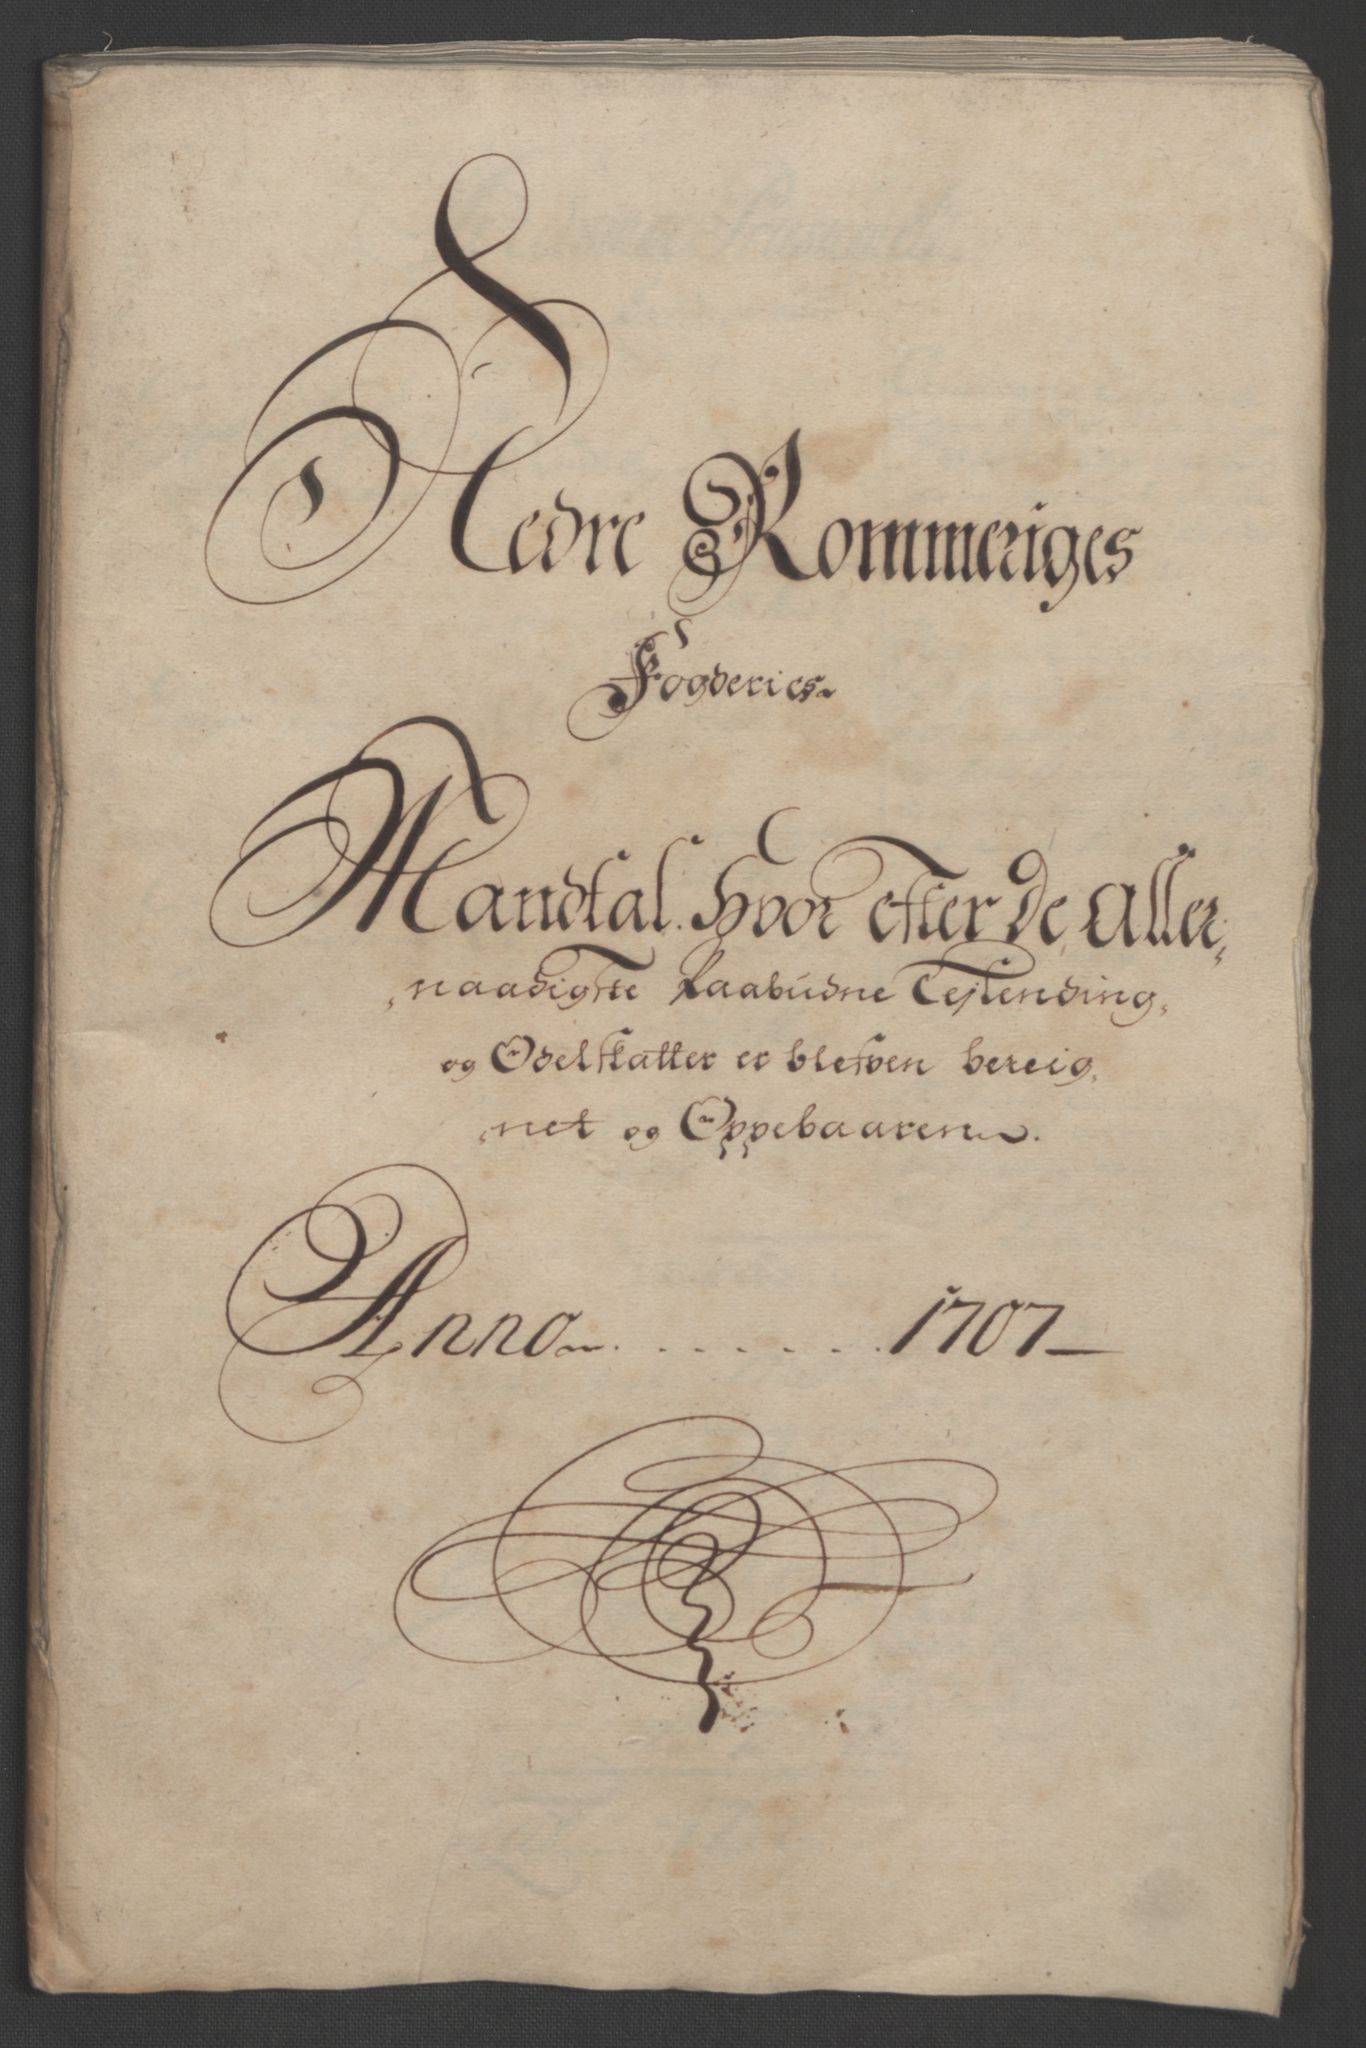 Nedre Rommeriges
Fogderies
Mandtal hvor efter de Aller,
,naadigste Paabudne Tejlending,
og Odelskatter er blefven bereig,
,net og Oppebaaren.
Anno . . . . . . . 1707